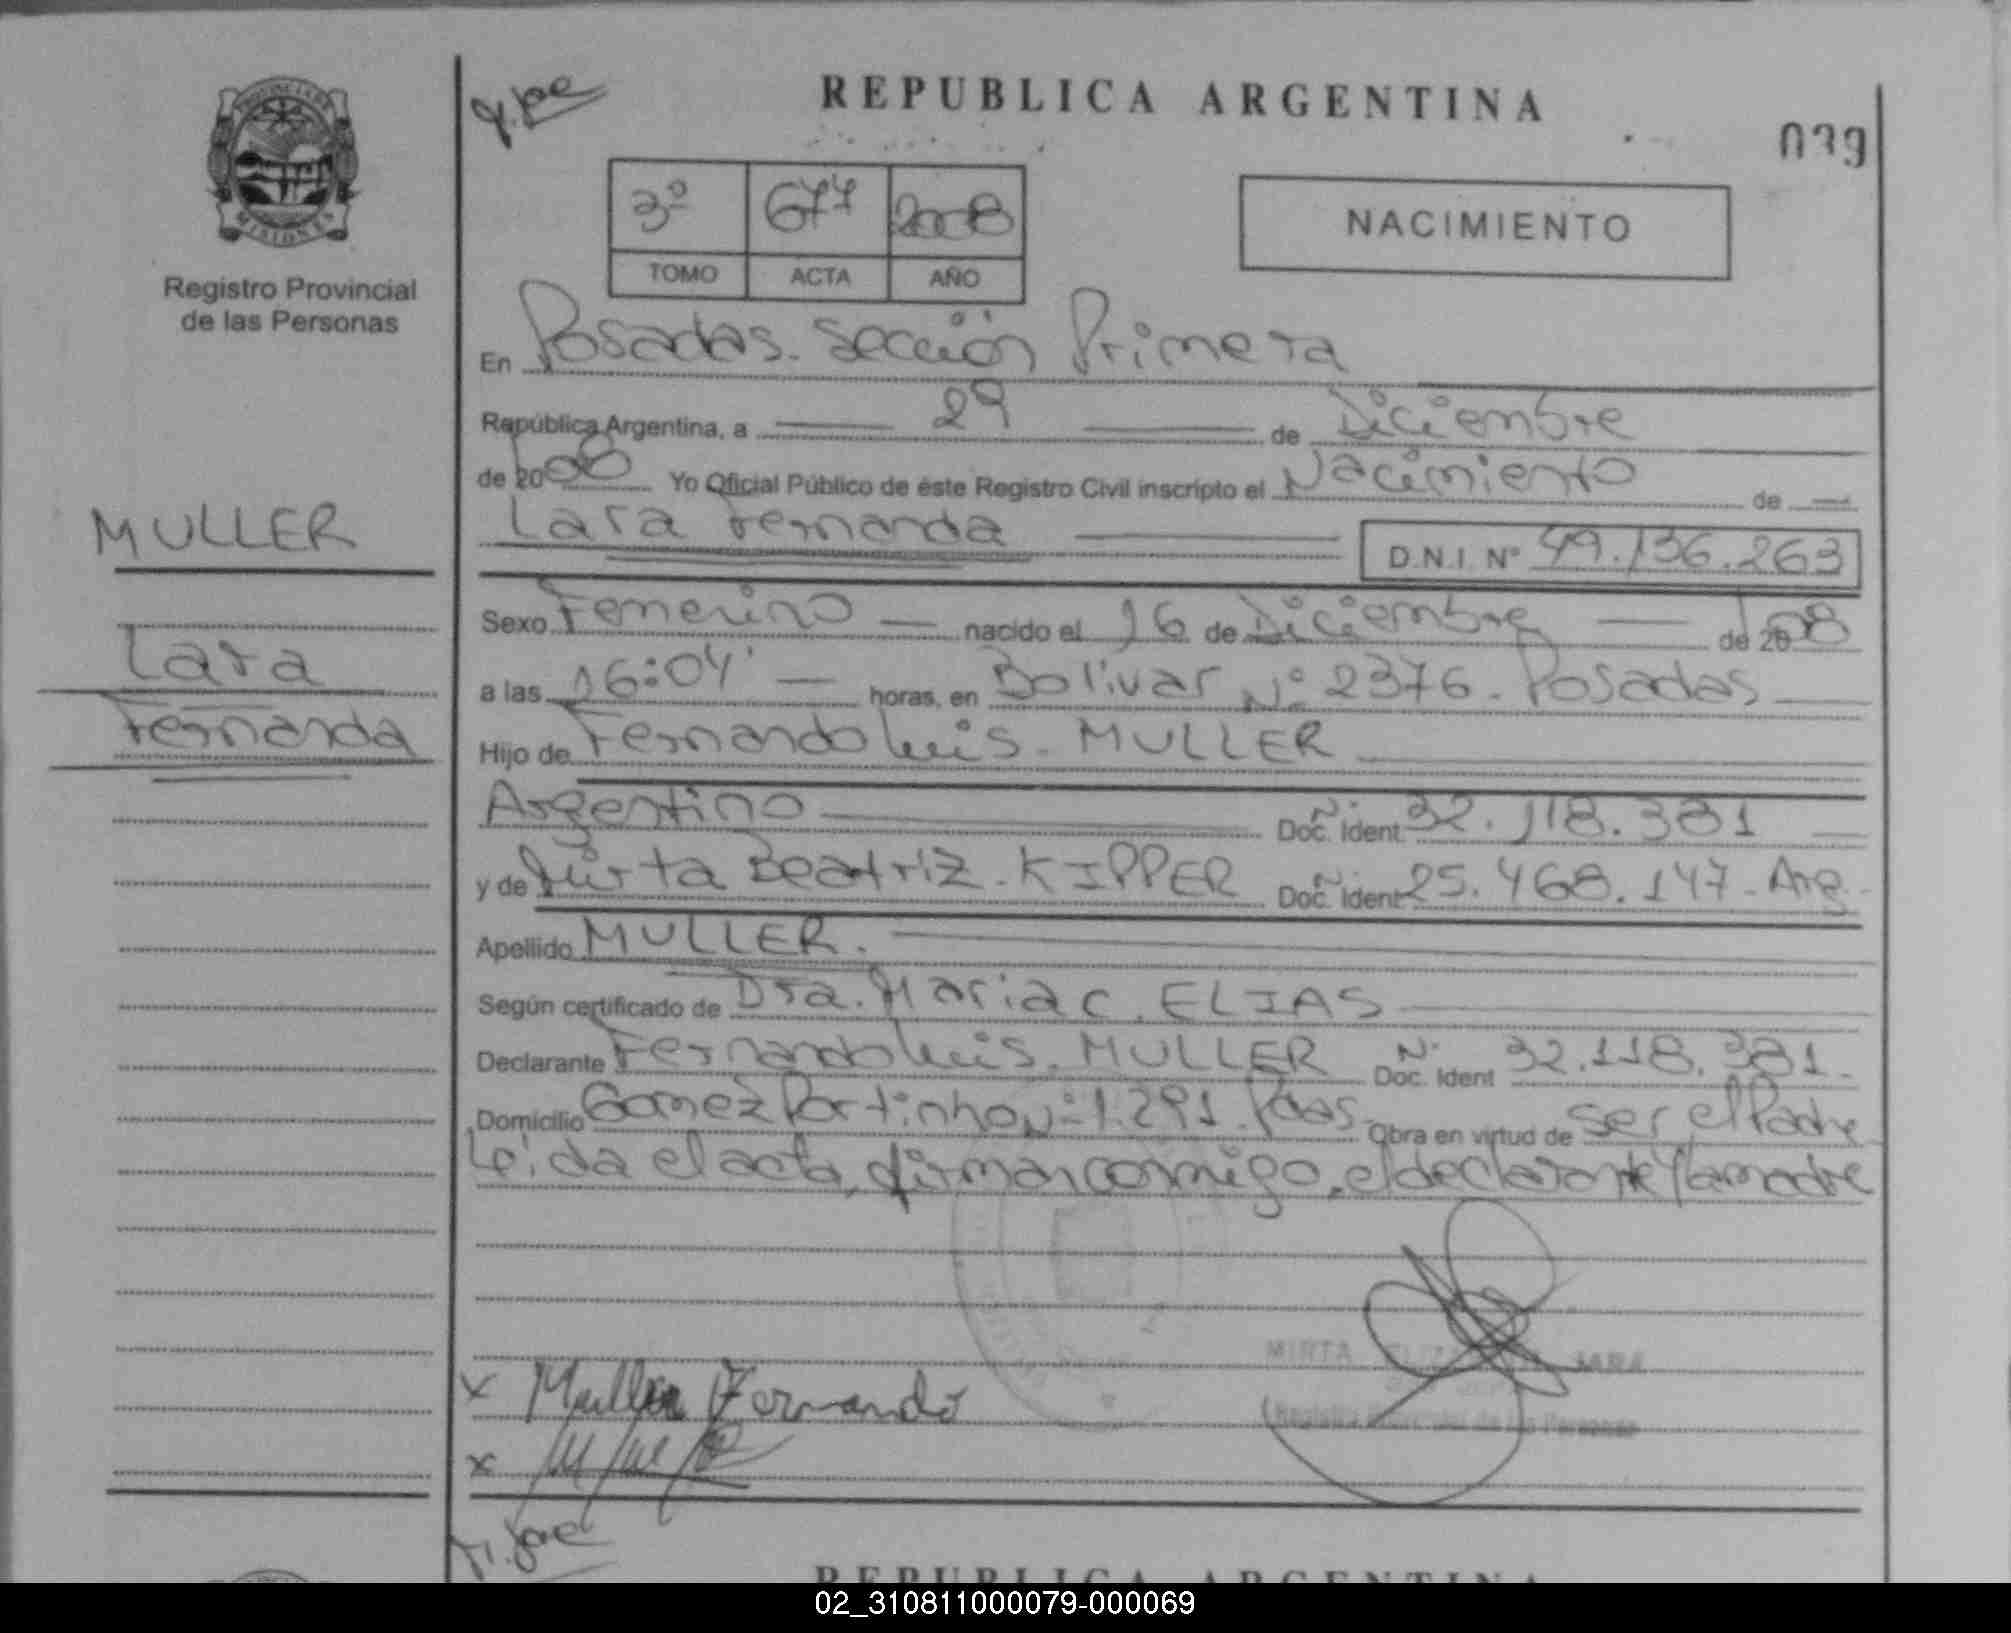 REPUBLICA ARGENTINA
039
PROVINCIA DE
MISIONES
Registro Provincial
de las Personas
3º 677 2008
TOMO ACTA AÑO
NACIMIENTO
En Posadas. Sección Primera
República Argentina, a 29 de Diciembre
de 2008 Yo Oficial Público de éste Registro Civil inscripto el Nacimiento de
Lara Fernanda D.N.I. Nº 49.136.263
MULLER
Lara
Fernanda
Sexo Femenino nacido el 16 de Diciembre de 2008
a las 16:04' horas, en Bolivar Nº 2376. Posadas
Hijo de Fernando Luis. MULLER
Argentino Doc. Ident. Nº 32.118.381
y de Mirta Beatriz. KIPPER Doc. Ident. Nº 25.468.147. Arg.
Apellido MULLER.
Según certificado de Dra. Maria C. ELIAS
Declarante Fernando Luis. MULLER Doc. Ident Nº 32.118.381.
Domicilio Gomez Portinho Nº 1.291. Pdas. Obra en virtud de ser el Padre
Leida el acta, firman conmigo, el declarante y la madre
MIRTA JARA
Registro Provincial de las Personas
x Muller Fernando
x
REPUBLICA ARGENTINA
02_310811000079-000069